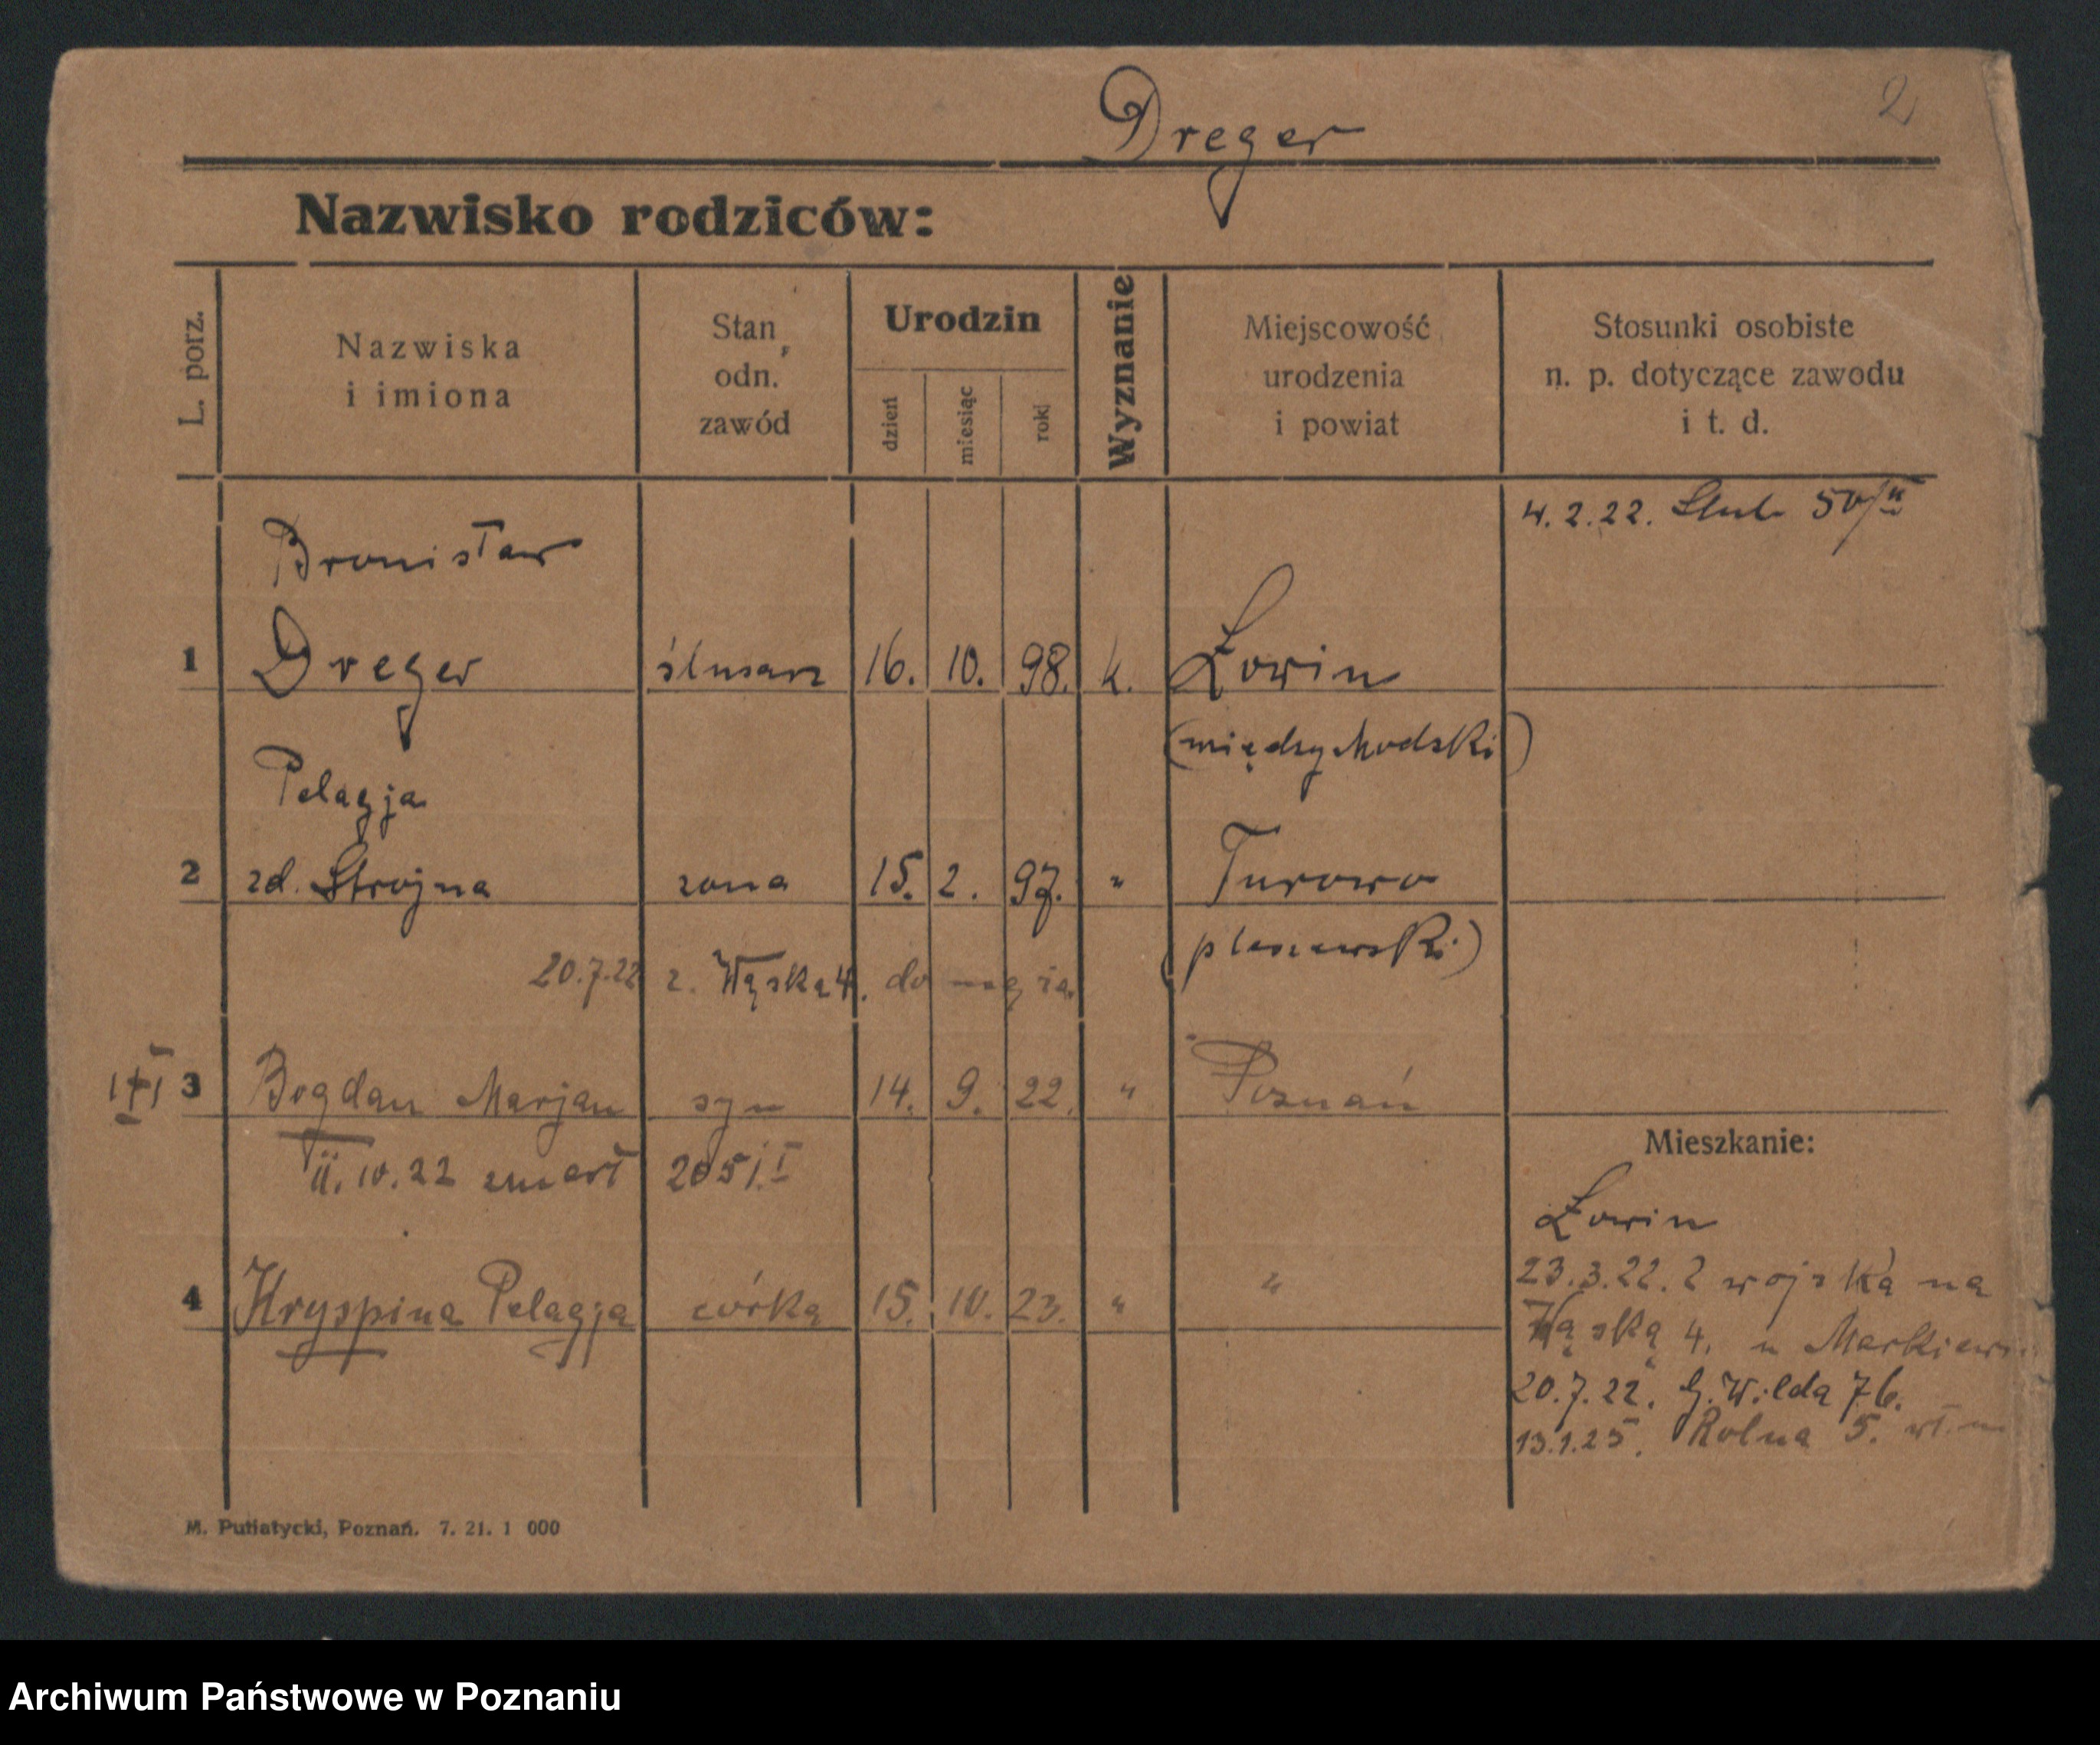 2
Dreger
Nazwisko rodziców:
L. porz.
Nazwiska i imiona
Stan odn. zawód
Urodzin
dzień miesiąc rok
Wyznanie
Miejscowość urodzenia i powiat
Stosunki osobiste n. p. dotyczące zawodu i t. d.
4.2.22. Ślub 50/
Bronisław
1 Dreger ślusarz 16. 10. 98. k. Łowin
(międzychodzki)
Pelagja
2 zd. Strojna żona 15. 2. 97. " Turowo
(pleszewski)
20.7.22 z. Wąska 4. do męża
3 Bogdan Marjan syn 14. 9. 22. " Poznań
11.10.22 zmarł
4 Kryspina Pelagja córka 15. 10. 23. " "
Mieszkanie:
Łowin
23.3.22. z wojska na
Wąską 4. u
20.7.22. G. Wilda 76.
13.1.25. Rolna 5.
M. Putiatycki, Poznań. 7. 21. 1 000
Archiwum Państwowe w Poznaniu